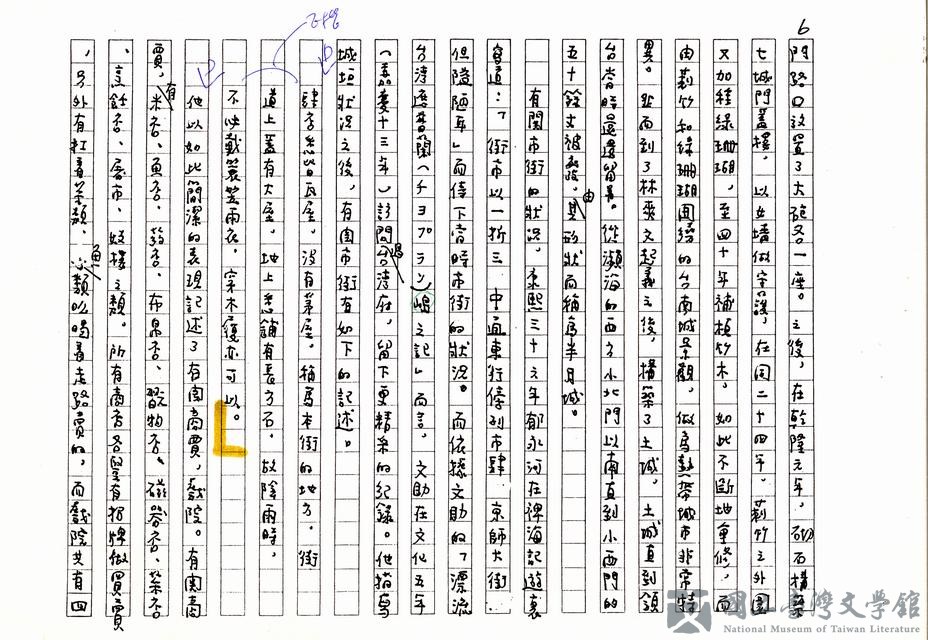 6
門路口設置了大砲各一座。之後,在乾隆元年,砌石構築
七城門蓋樓,以女墻做守護,在同二十四年,莿竹之外圍
又加種綠珊瑚,至四十年補植竹木,如此不斷地重修,而
由莿竹和綠珊瑚圍繞的台南城景觀,做為熱帶城市非常特
異。然而到了林爽文起義之後,構築了土城,土城直到領
台當時還遺留著。從瀕海的西方小北門以南直到小西門的
五十餘丈被廢,由其形狀而稱為半月城。
有關市街的狀況,康熙三十六年郁永河在裨海記遊裏
寫道:「街市以一折三,中通車行傍列市肆,京師大街
但隘陋耳」而傳下當時市街的狀況。而依據文助的「漂流
台灣 チョプラン嶋之記」而言,文助在文化五年
(嘉慶十三年)訪問過台湾府,留下更精采的紀錄。他描寫
城垣狀況之後,有關市街有如下的記述。
肆舍悉皆瓦屋,沒有茅屋,稱為本街的地方,街
道上蓋有大屋,地上悉舖有長方石,故陰雨時,
不必戴簑笠雨衣,穿木屐亦可以。
他以如此簡潔的表現記述了有關商賈,戲院。有關商
賈,有米舍、魚舍、布帛舍、磁器舍、菜舍
、烹飪舍、屠市、妓樓之類。所有商舍各自皆有招牌做買賣
,另外有扛着菜類、魚類叱喝着走路賣的,而戲院共有四
國立臺灣文學館
National Museum of Taiwan Literature